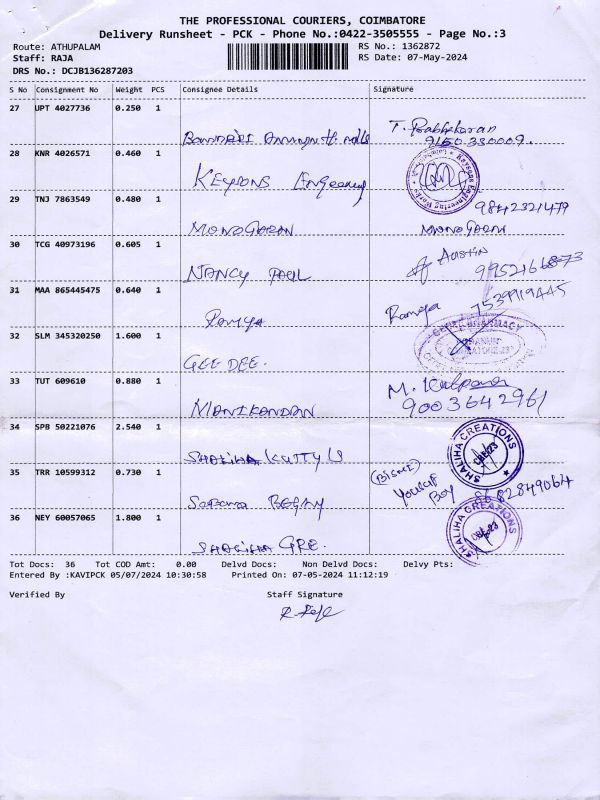 THE PROFESSIONAL COURIERS, COIMBATORE
Delivery Runsheet - PCK - Phone No.:0422-3505555 - Page No.:3
Route: ATHUPALAM RS No.: 1362872
Staff: RAJA RS Date: 07-May-2024
DRS No.: DCJB136287203
S No Consignment No Weight PCS Consignee Details Signature
27 UPT 4027736 0.250 1
T. Prabhakaran
9150330009.
28 KNR 4026571 0.460 1
KEYSONS Engineering
Keysons Engineering Works
29 TNJ 7863549 0.480 1
9842321479
MONOGARAN MONOGARAN
30 TCG 40973196 0.605 1
NANCY PAUL Austin
9952166873
31 MAA 865445475 0.640 1
RAMYA Ramya 7539919445
32 SLM 345320250 1.600 1
GEE DEE. PHARMACY
33 TUT 609610 0.880 1
MANIKANDAN M. Kalpana
9003642961
34 SPB 50221076 2.540 1
SHALIHA SHALIHA CREATIONS
35 TRR 10599312 0.730 1
(BISMI)
Yousuf Boy 8682849064
36 NEY 60057065 1.800 1
SHALIHA CRE. SHALIHA CREATIONS
Tot Docs: 36 Tot COD Amt: 0.00 Delvd Docs: Non Delvd Docs: Delvy Pts:
Entered By :KAVIPCK 05/07/2024 10:30:58 Printed On: 07-05-2024 11:12:19
Verified By Staff Signature